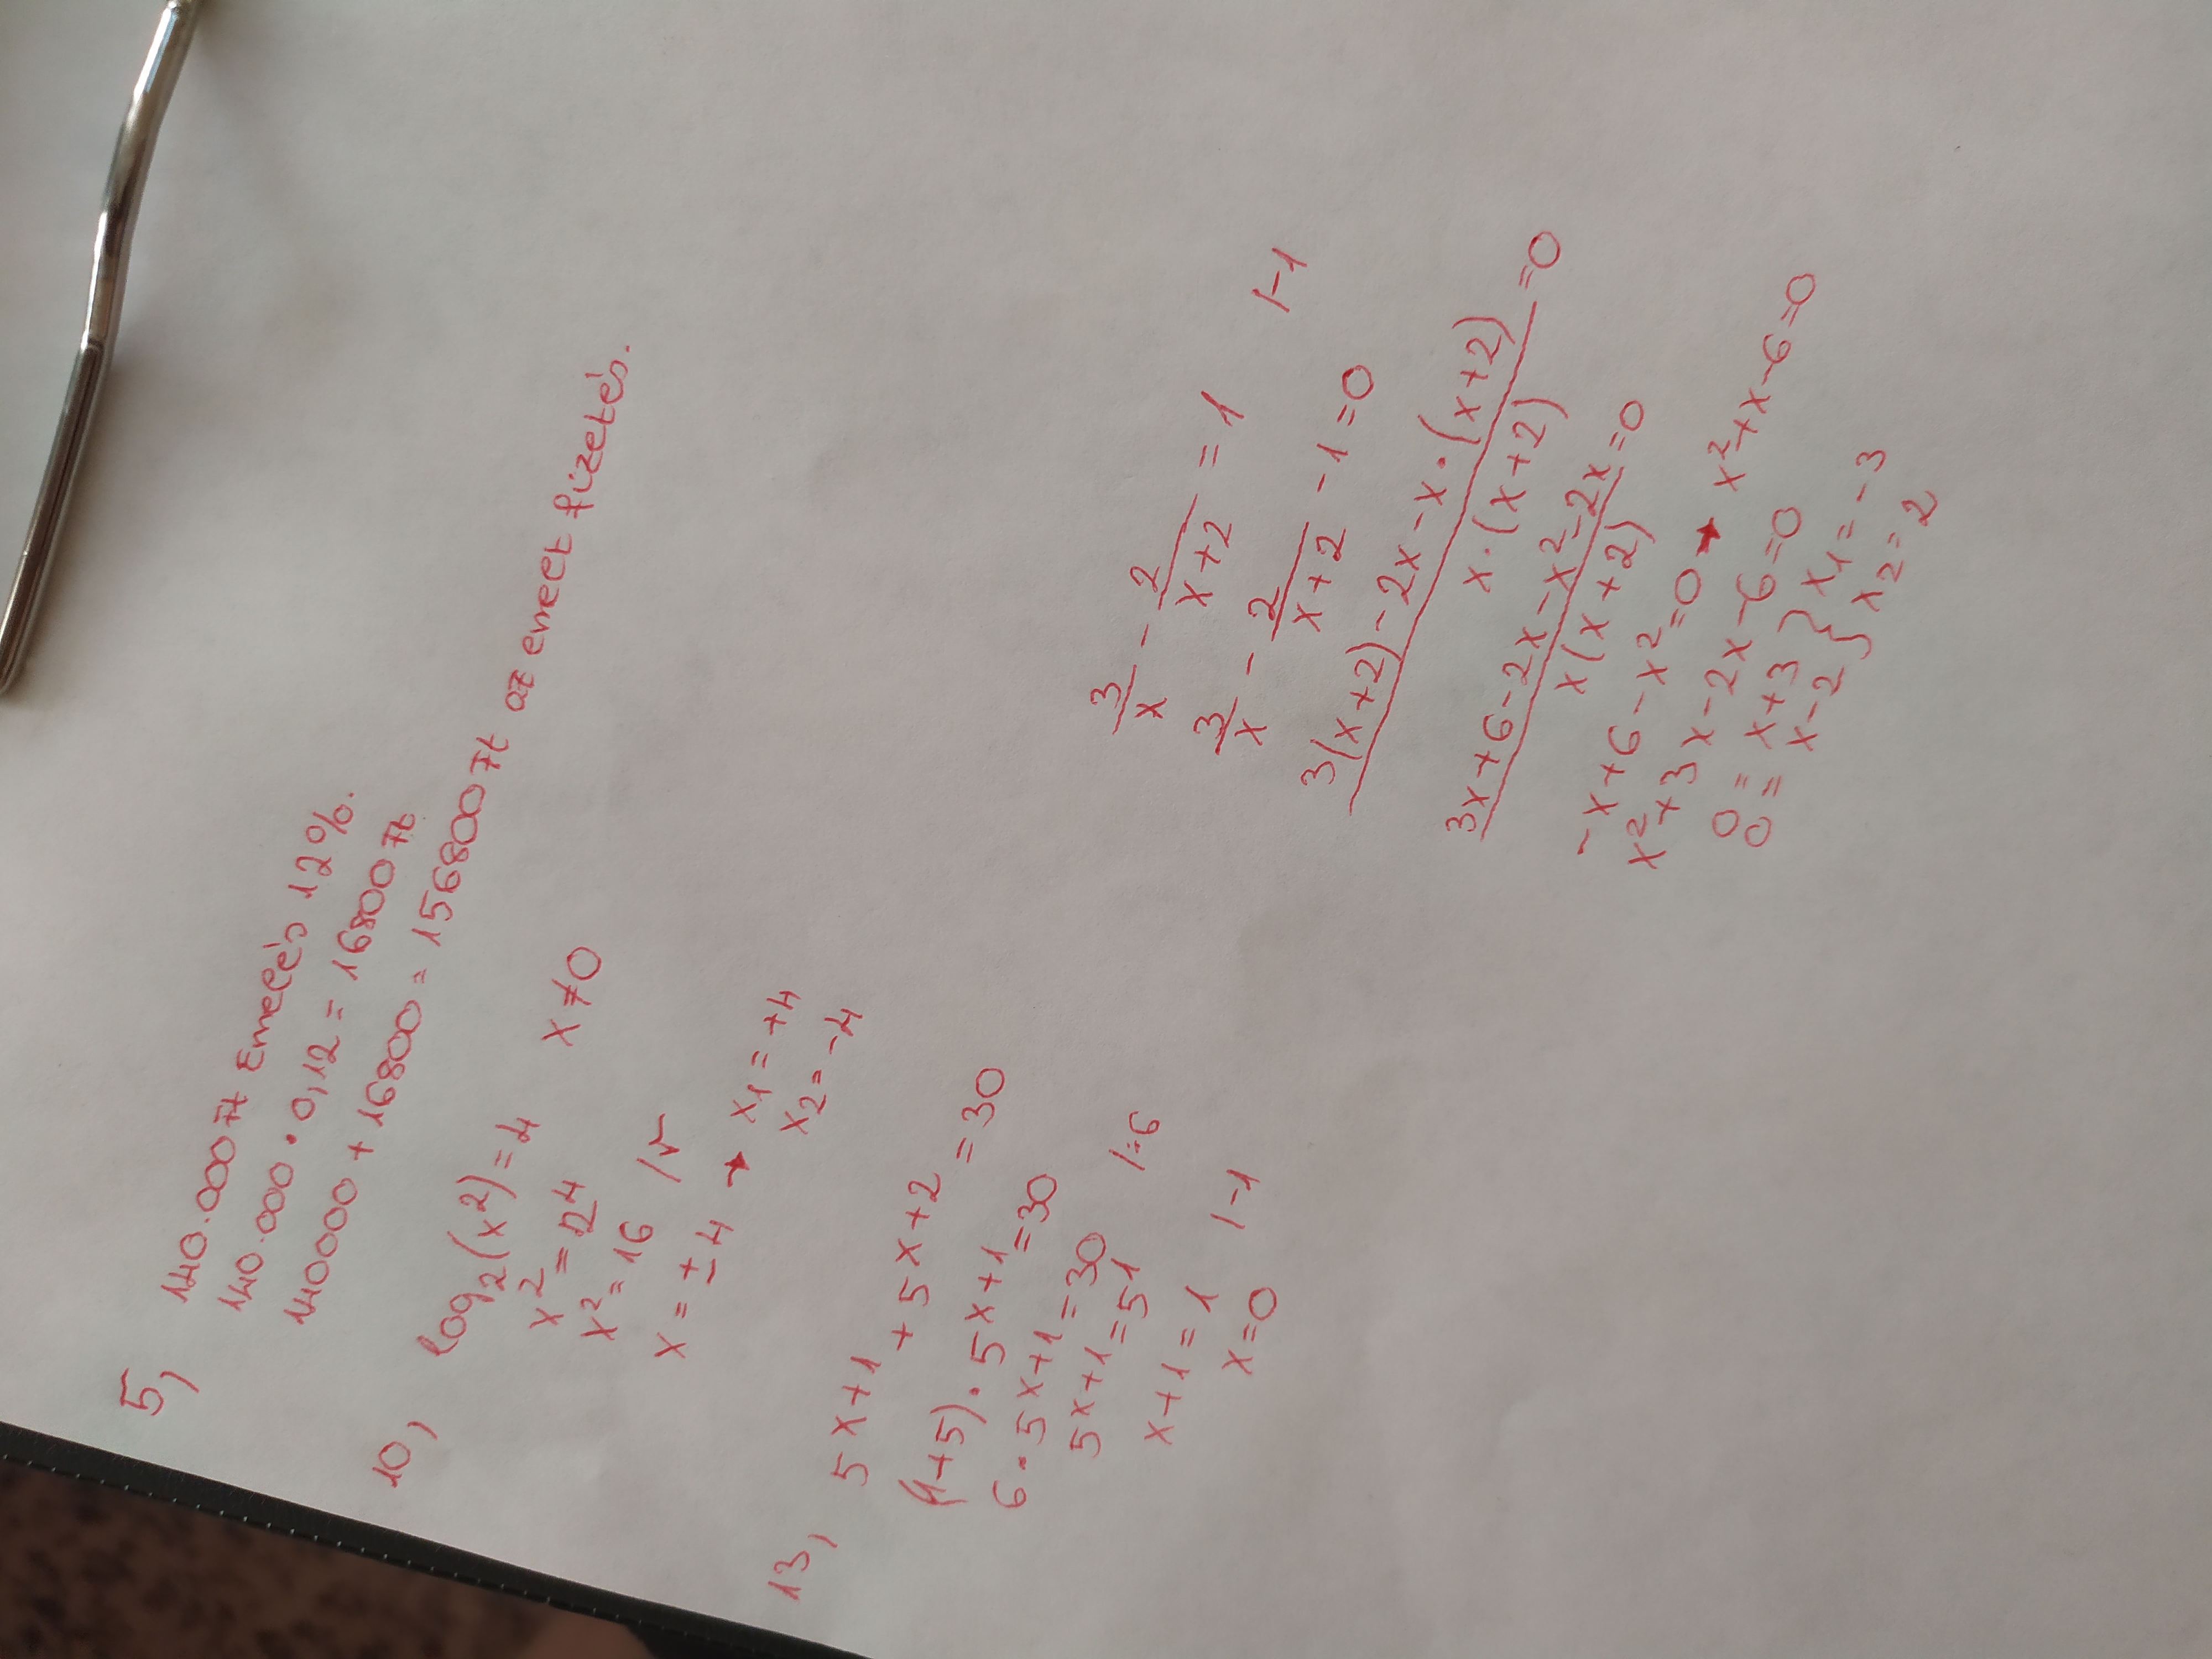 5,
140.000 Ft Emelés 12%.
140.000 • 0,12 = 16800 Ft
140000 + 16800 = 156800 Ft az emelt fizetés.
10,
log₂(x²) = 4 x ≠ 0
x² = 2⁴
x² = 16 /√
x = ± 4 → x₁ = +4
x₂ = -4
13,
5^x+1 + 5^x+2 = 30
(1+5) • 5^x+1 = 30
6 • 5^x+1 = 30 /:6
5^x+1 = 5¹
x+1 = 1 /-1
x = 0
3/x - 2/x+2 = 1 /-1
3/x - 2/x+2 - 1 = 0
3(x+2) - 2x - x•(x+2) / x•(x+2) = 0
3x+6-2x-x²-2x / x(x+2) = 0
-x+6-x² = 0 → x²+x-6=0
x²+3x-2x-6=0
0 = x+3 } x₁ = -3
0 = x-2 } x₂ = 2